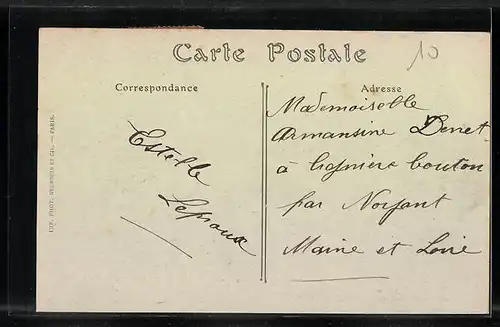 Carte Postale
10
Correspondance
Estelle
Leproux
Adresse
Mademoiselle
Armansine Denet
à lignière bouton
par Noyant
Maine et Loire
IMP. PHOT. NEURDEIN ET CIE. — PARIS.